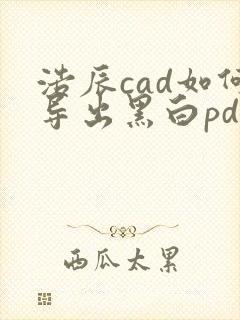 浩辰cad如何
导出黑白pd
西瓜太累